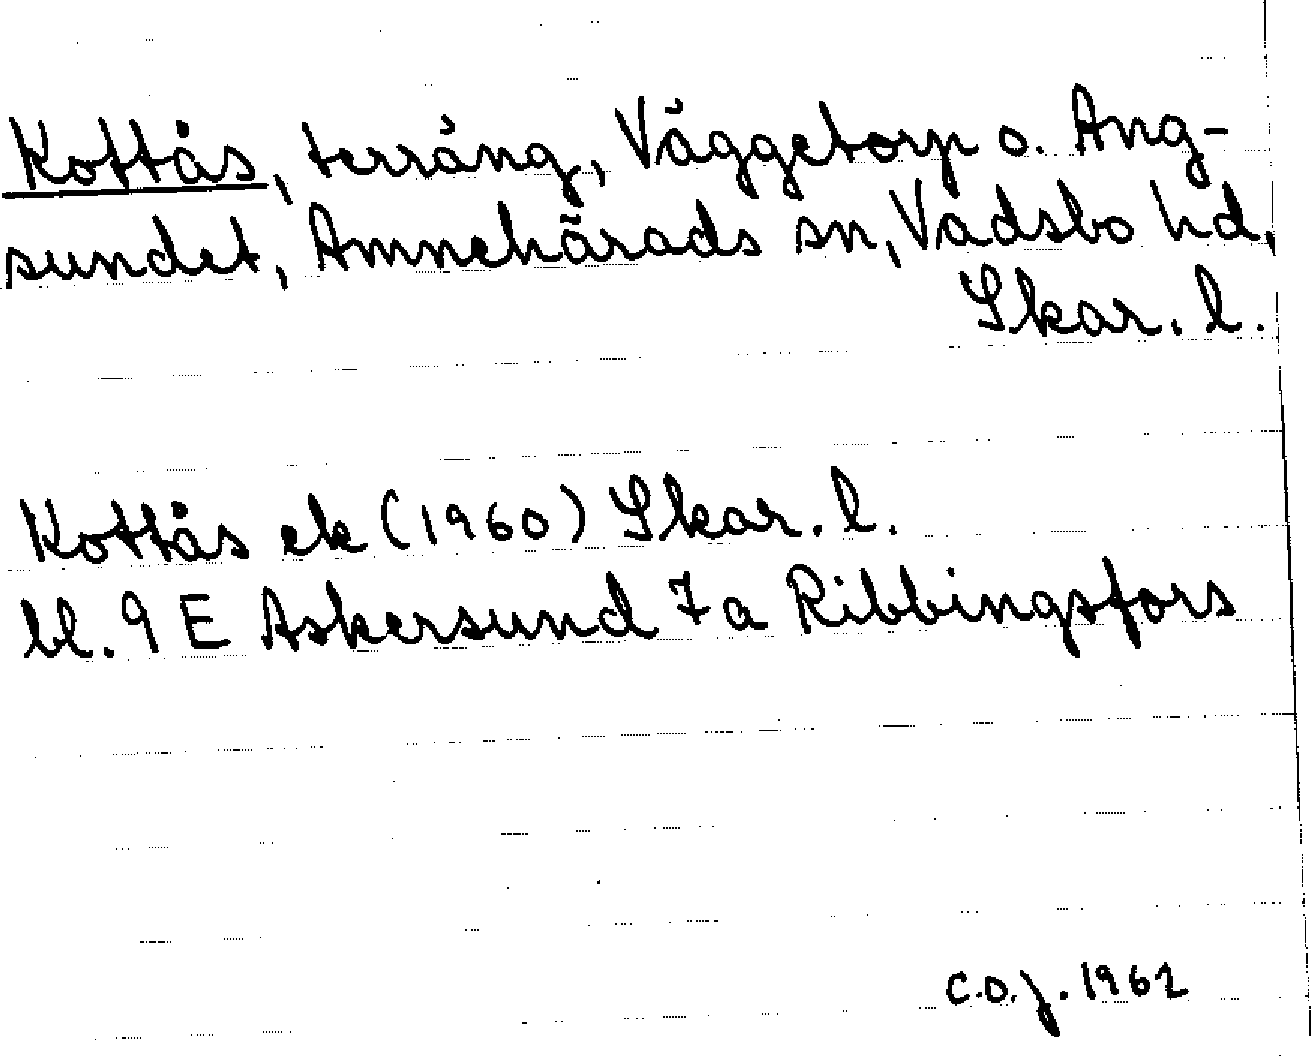 Kottås, terräng, Väggetorp o. Ang-
sundet, Amnehärads sn, Vadsbo hd,
Skar. l.
Kottås ek (1960) Skar. l.
bl. 9 E Askersund 7 a Ribbingsfors
C.O.J. 1962